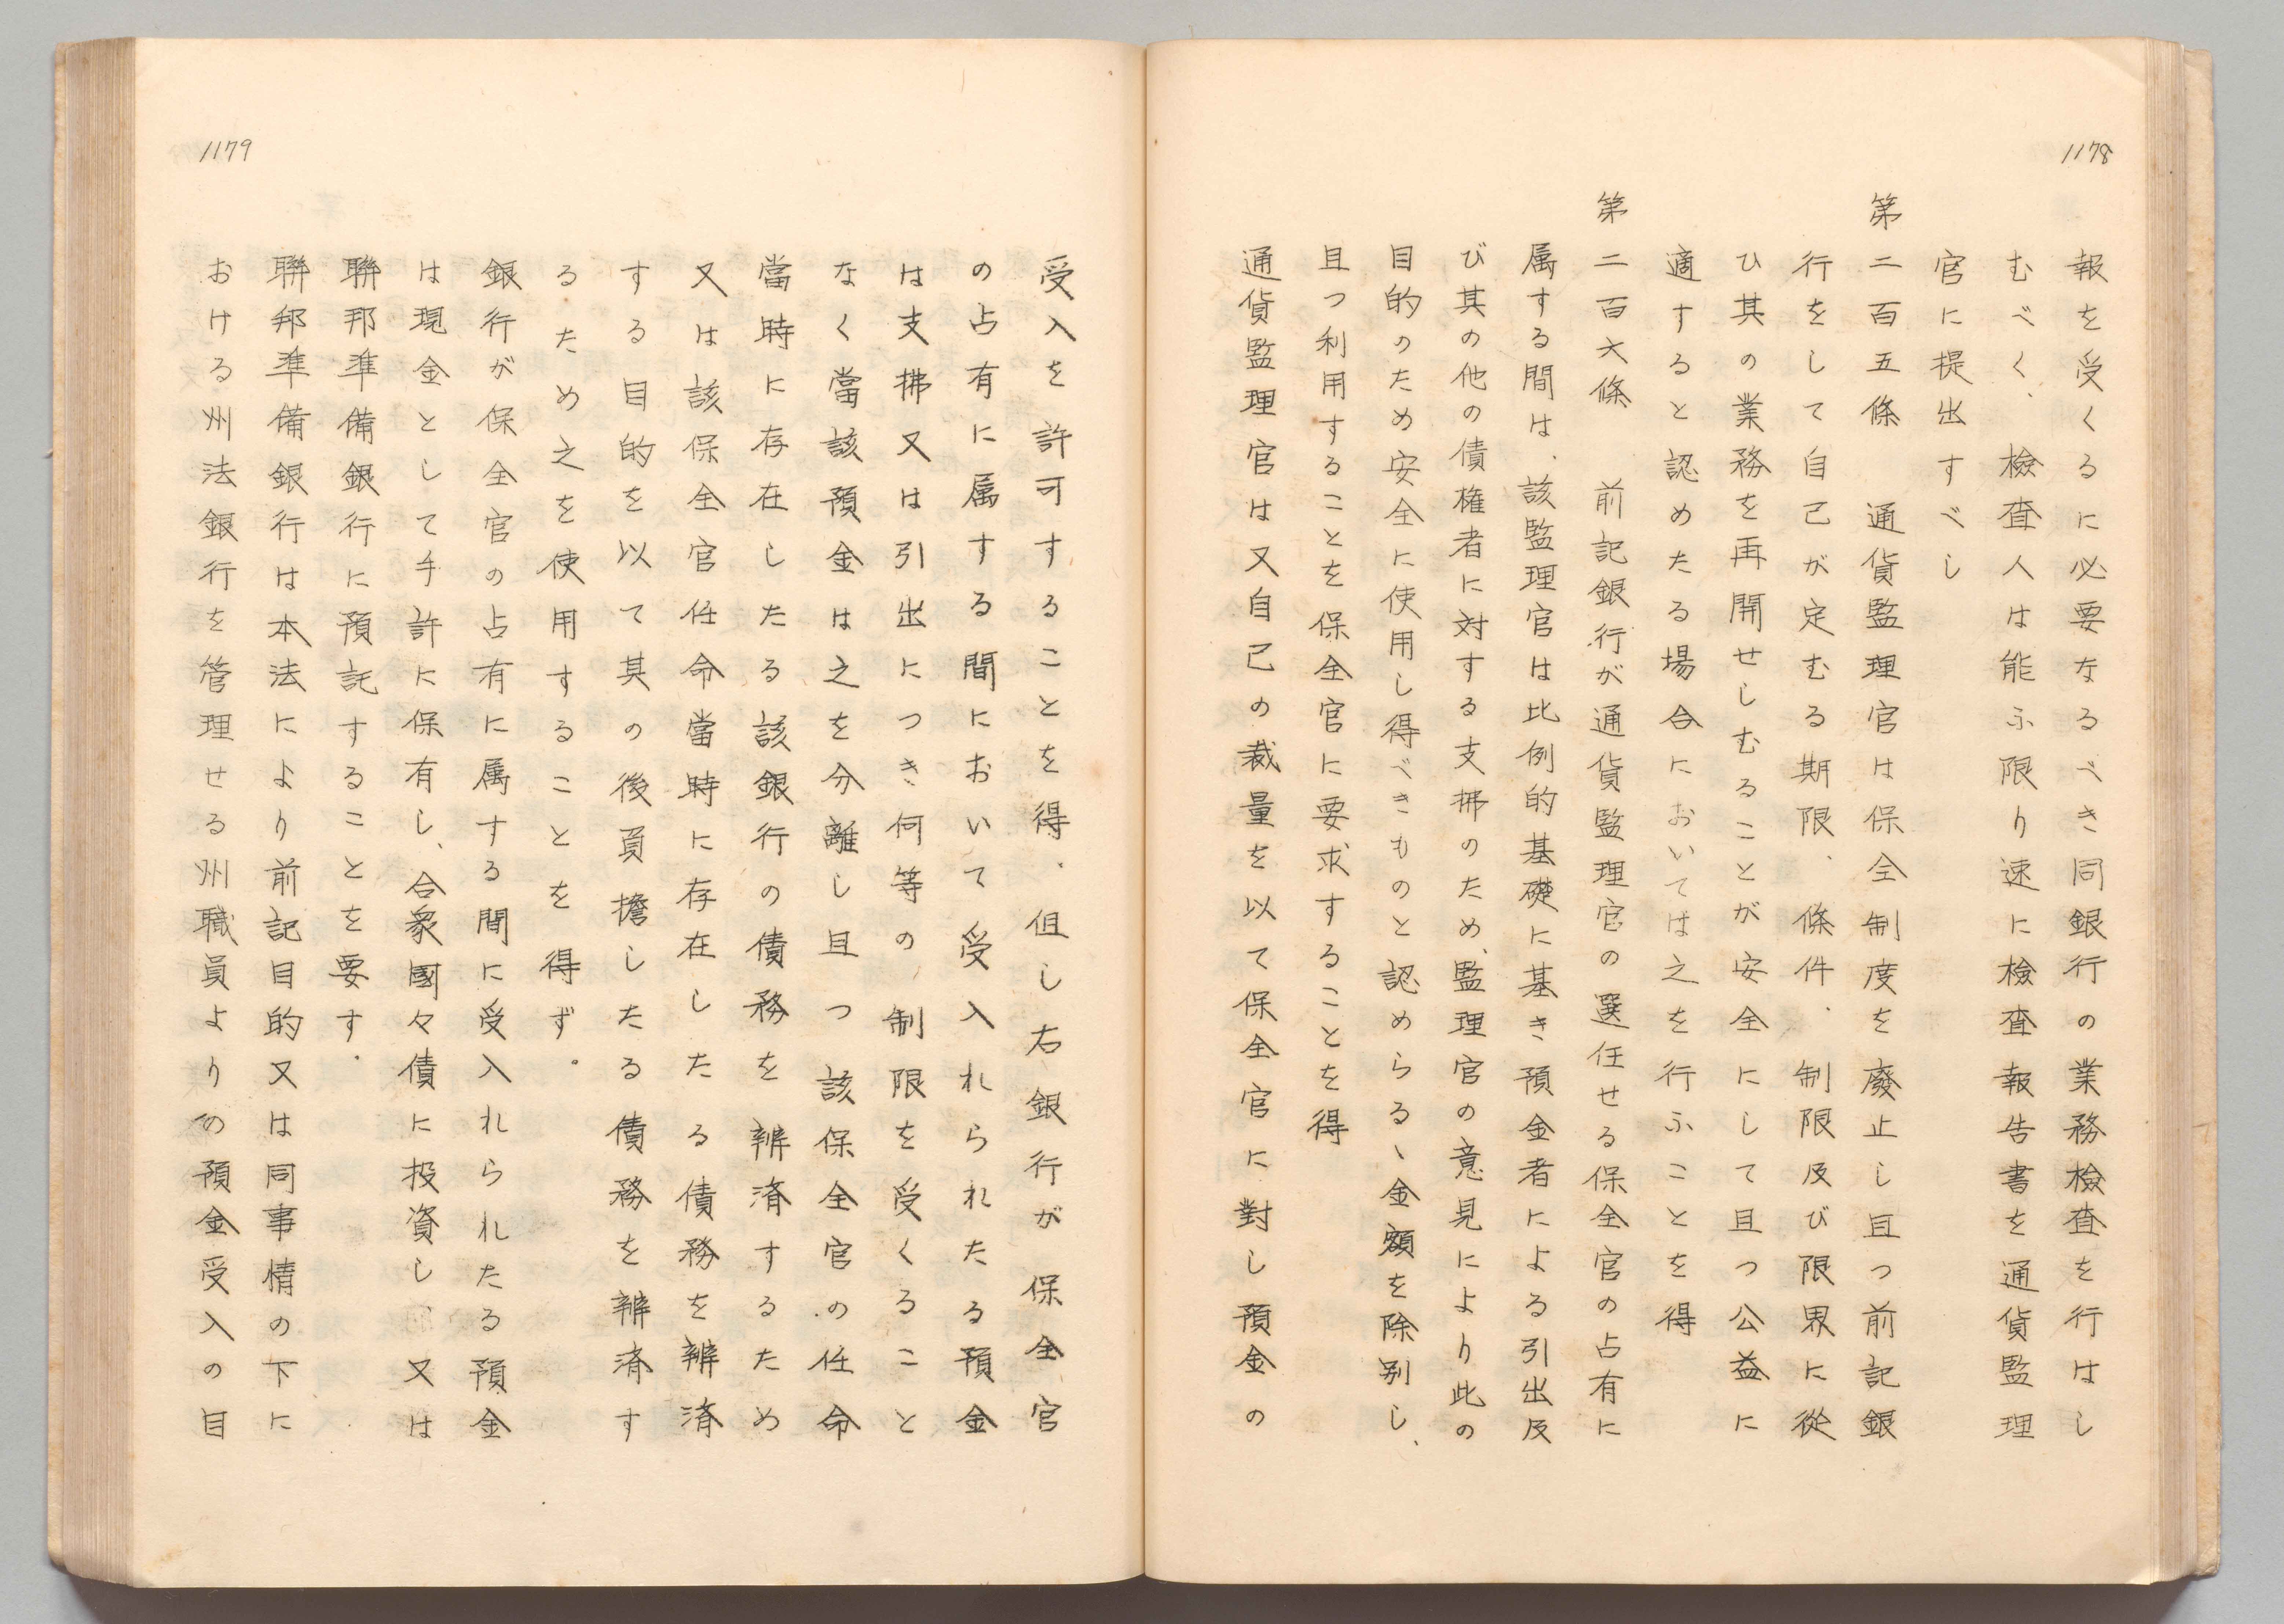 1178
報を受くるに必要なるべき同銀行の業務檢査を行はし
むべく、檢査人は能ふ限り速に檢査報告書を通貨監理
官に提出すべし
第二百五條　通貨監理官は保全制度を廢止し且つ前記銀
行をして自己が定むる期限、條件、制限及び限界に從
ひ其の業務を再開せしむることが安全にして且つ公益に
適すると認めたる場合においては之を行ふことを得
第二百六條　前記銀行が通貨監理官の選任せる保全官の占有に
属する間は、該監理官は比例的基礎に基き預金者による引出及
び其の他の債権者に対する支拂のため、監理官の意見により此の
目的のため安全に使用し得べきものと認めらるゝ金額を除别し、
且つ利用することを保全官に要求することを得
通貨監理官は又自己の裁量を以て保全官に對し預金の
1179
受入を許可することを得、但し右銀行が保全官
の占有に属する間において受入れられたる預金
は支拂又は引出につき何等の制限を受くること
なく當該預金は之を分離し且つ該保全官の任命
當時に存在したる該銀行の債務を辨済するため
又は該保全官任命當時に存在したる債務を辨済
する目的を以て其の後負擔したる債務を辨済す
るため之を使用することを得ず。
銀行が保全官の占有に属する間に受入れられたる預金
は現金として手許に保有し、合衆國々債に投資し、又は
聯邦準備銀行に預託することを要す.
聯邦準備銀行は本法により前記目的又は同事情の下に
おける州法銀行を管理せる州職員よりの預金受入の目